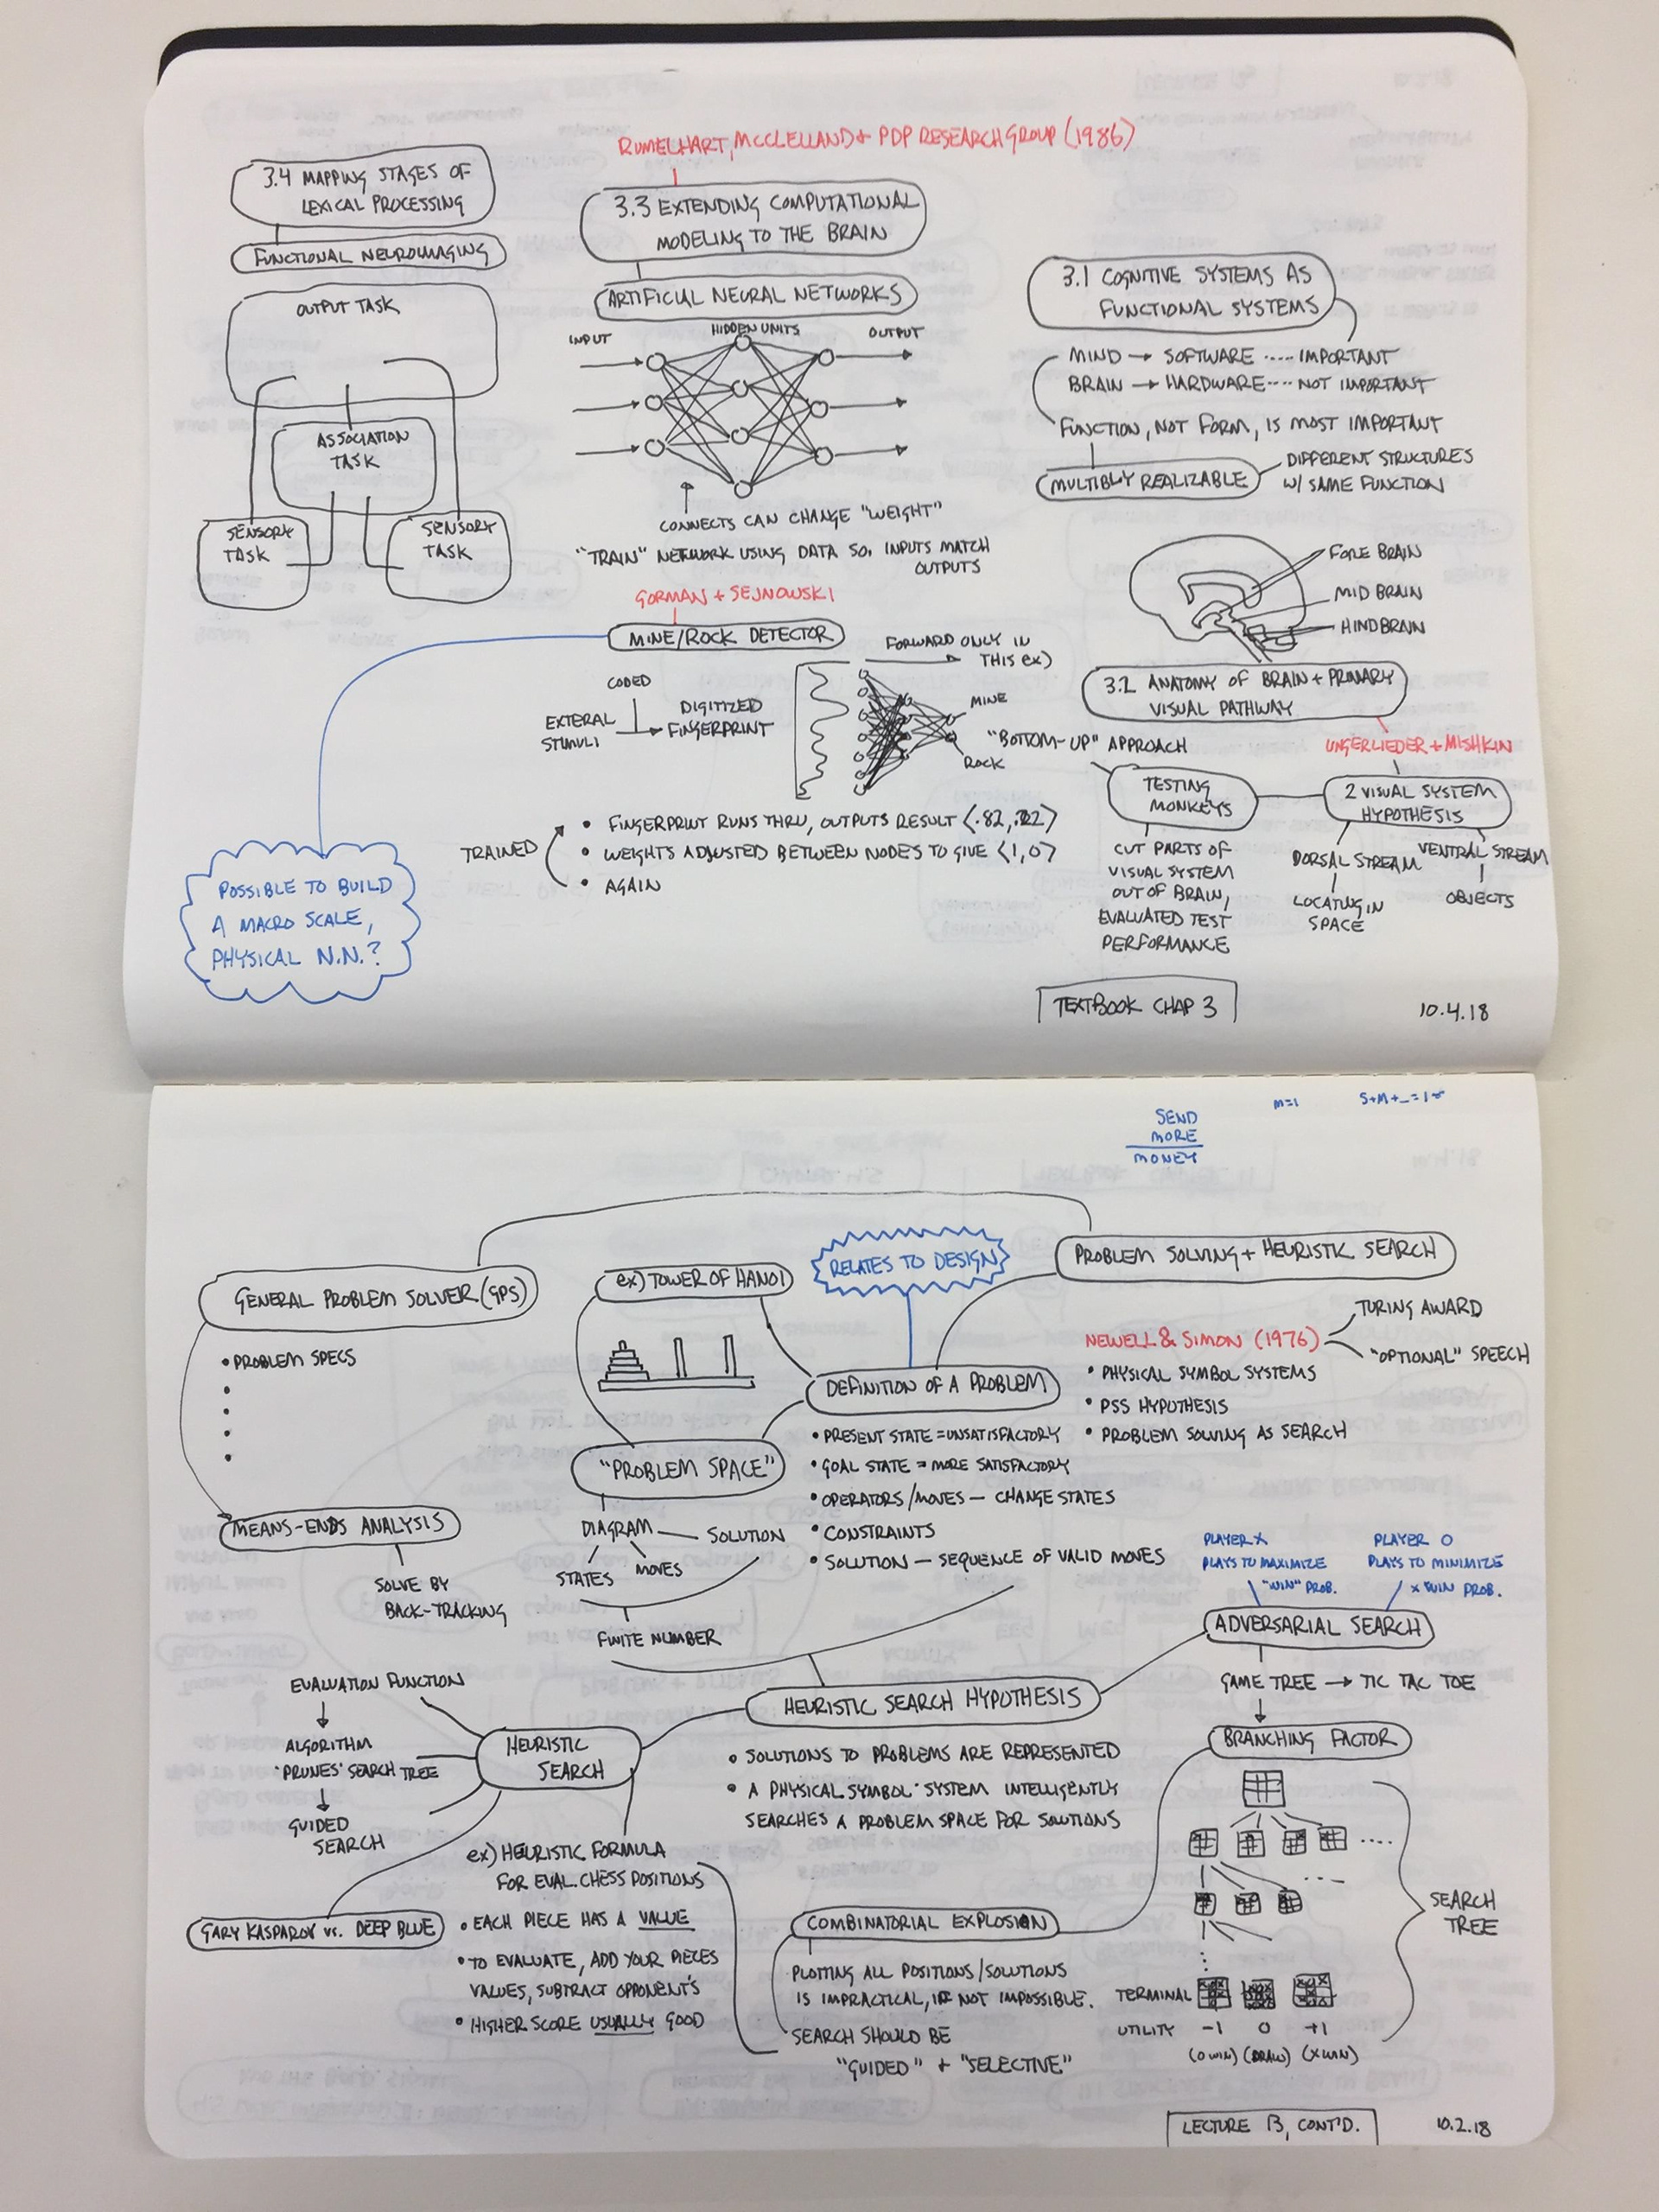 RUMELHART, MCCLELLAND + PDP RESEARCH GROUP (1986)
3.4 MAPPING STAGES OF
LEXICAL PROCESSING
FUNCTIONAL NEUROIMAGING
OUTPUT TASK
ASSOCIATION
TASK
SENSORY
TASK
SENSORY
TASK
3.3 EXTENDING COMPUTATIONAL
MODELING TO THE BRAIN
ARTIFICIAL NEURAL NETWORKS
INPUT
HIDDEN UNITS
OUTPUT
CONNECTS CAN CHANGE "WEIGHT"
"TRAIN" NETWORK USING DATA SO, INPUTS MATCH
OUTPUTS
GORMAN + SEJNOWSKI
MINE/ROCK DETECTOR
FORWARD ONLY IN
THIS ex)
CODED
EXTERAL
STIMULI
DIGITIZED
FINGERPRINT
MINE
ROCK
TRAINED
• FINGERPRINT RUNS THRU, OUTPUTS RESULT <.82, .22>
• WEIGHTS ADJUSTED BETWEEN NODES TO GIVE <1, 0>
• AGAIN
POSSIBLE TO BUILD
A MACRO SCALE,
PHYSICAL N.N.?
3.1 COGNITIVE SYSTEMS AS
FUNCTIONAL SYSTEMS
MIND → SOFTWARE ···· IMPORTANT
BRAIN → HARDWARE ···· NOT IMPORTANT
FUNCTION, NOT FORM, IS MOST IMPORTANT
MULTIBLY REALIZABLE
DIFFERENT STRUCTURES
W/ SAME FUNCTION
FORE BRAIN
MID BRAIN
HINDBRAIN
3.2 ANATOMY OF BRAIN + PRIMARY
VISUAL PATHWAY
UNGERLIEDER + MISHKIN
"BOTTOM-UP" APPROACH
TESTING
MONKEYS
CUT PARTS OF
VISUAL SYSTEM
OUT OF BRAIN,
EVALUATED TEST
PERFORMANCE
2 VISUAL SYSTEM
HYPOTHESIS
DORSAL STREAM
LOCATING IN
SPACE
VENTRAL STREAM
OBJECTS
TEXTBOOK CHAP 3
10.4.18
SEND
MORE
MONEY
M=1
GENERAL PROBLEM SOLVER (GPS)
• PROBLEM SPECS
•
•
•
•
MEANS-ENDS ANALYSIS
SOLVE BY
BACK-TRACKING
ex) TOWER OF HANOI
RELATES TO DESIGN
PROBLEM SOLVING + HEURISTIC SEARCH
NEWELL & SIMON (1976)
TURING AWARD
"OPTIONAL" SPEECH
• PHYSICAL SYMBOL SYSTEMS
• PSS HYPOTHESIS
• PROBLEM SOLVING AS SEARCH
DEFINITION OF A PROBLEM
• PRESENT STATE = UNSATISFACTORY
• GOAL STATE = MORE SATISFACTORY
• OPERATORS/MOVES — CHANGE STATES
• CONSTRAINTS
• SOLUTION — SEQUENCE OF VALID MOVES
"PROBLEM SPACE"
DIAGRAM
SOLUTION
STATES
MOVES
FINITE NUMBER
PLAYER X
PLAYS TO MAXIMIZE
"WIN" PROB.
PLAYER O
PLAYS TO MINIMIZE
X WIN PROB.
ADVERSARIAL SEARCH
GAME TREE → TIC TAC TOE
BRANCHING FACTOR
SEARCH
TREE
TERMINAL
UTILITY -1 0 +1
(O WIN) (DRAW) (X WIN)
HEURISTIC SEARCH HYPOTHESIS
• SOLUTIONS TO PROBLEMS ARE REPRESENTED
• A PHYSICAL SYMBOL SYSTEM INTELLIGENTLY
SEARCHES A PROBLEM SPACE FOR SOLUTIONS
EVALUATION FUNCTION
ALGORITHM
'PRUNES' SEARCH TREE
GUIDED
SEARCH
HEURISTIC
SEARCH
GARY KASPAROV vs. DEEP BLUE
ex) HEURISTIC FORMULA
FOR EVAL. CHESS POSITIONS
• EACH PIECE HAS A VALUE
• TO EVALUATE, ADD YOUR PIECES
VALUES, SUBTRACT OPPONENT'S
• HIGHER SCORE USUALLY GOOD
COMBINATORIAL EXPLOSION
PLOTTING ALL POSITIONS/SOLUTIONS
IS IMPRACTICAL, IF NOT IMPOSSIBLE.
SEARCH SHOULD BE
"GUIDED" + "SELECTIVE"
LECTURE 3, CONT'D.
10.2.18